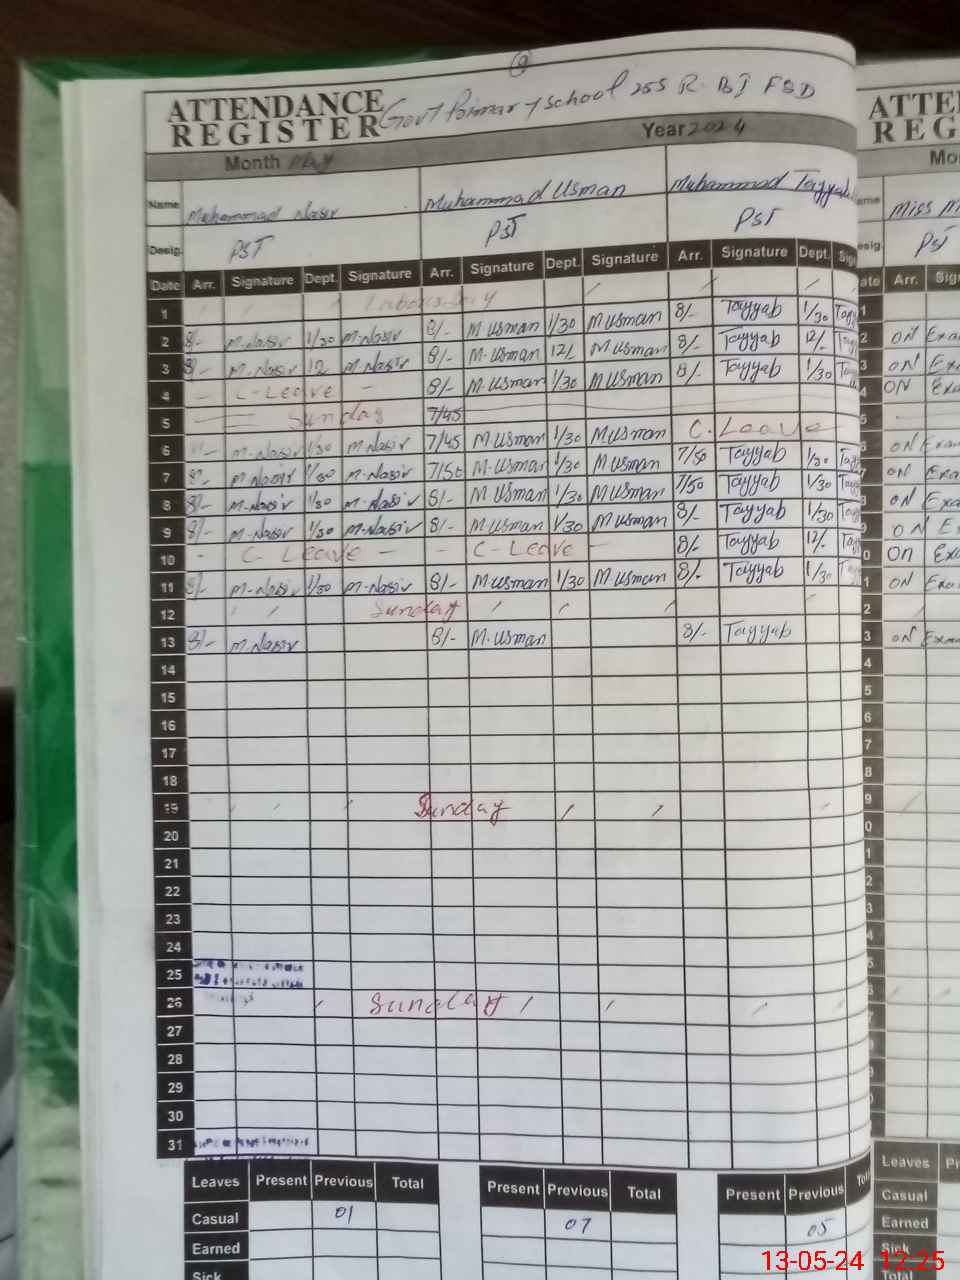 ATTENDANCE
REGISTER
Govt Primary School 255 R.B I FSD
Month May Year 2024
Name Muhammad Nasir Muhammad Usman Muhammad Tayyab
Desig. PST PST PST
Date Arr. Signature Dept. Signature Arr. Signature Dept. Signature Arr. Signature Dept.
1 Labour Day
2 8/- M.Nasir 1/30 M.Nasir 8/- M.Usman 1/30 M.Usman 8/- Tayyab 1/30
3 8/- M.Nasir 12 M.Nasir 8/- M.Usman 12/- M.Usman 8/- Tayyab 12/-
4 - C-Leave - 8/- M.Usman 1/30 M.Usman 8/- Tayyab 1/30
5 Sunday 7/45
6 M.Nasir 1/30 M.Nasir 7/45 M.Usman 1/30 M.Usman C.Leave
7 8/- M.Nasir 1/30 M.Nasir 7/50 M.Usman 1/30 M.Usman 7/50 Tayyab 1/30
8 8/- M.Nasir 1/30 M.Nasir 8/- M.Usman 1/30 M.Usman 7/50 Tayyab 1/30
9 8/- M.Nasir 1/30 M.Nasir 8/- M.Usman 1/30 M.Usman 8/- Tayyab 1/30
10 - C-Leave - - C-Leave - 8/- Tayyab 12/-
11 8/- M-Nasir 1/30 M-Nasir 8/- M.Usman 1/30 M.Usman 8/- Tayyab 1/30
12 Sunday
13 8/- M.Nasir 8/- M.Usman 8/- Tayyab
14
15
16
17
18
19 Sunday
20
21
22
23
24
25
26 Sunday
27
28
29
30
31
Leaves Present Previous Total Present Previous Total Present Previous
Casual 01 07 05
Earned
Sick
ATTE
REG
Mo
Miss M
PST
Arr.
ON Exa
ON Ex
ON Exa
ON Exam
ON Exa
ON Exa
ON Ex
ON Exa
ON Exa
ON Exam
Leaves
Casual
Earned
Sick
Total
13-05-24 12:25